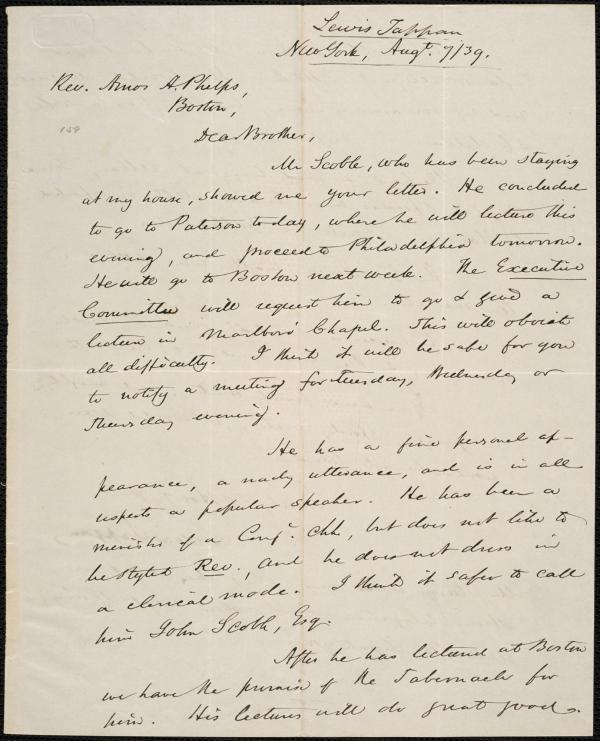 Lewis Tappan
New York, Augt. 7/39.
Rev. Amos A. Phelps,
Boston,
159
Dear Brother,
Mr Scoble, who has been staying
at my house, showed me your letter. He concluded
to go to Paterson to day, where he will lecture this
evening, and proceed to Philadelphia tomorrow.
He will go to Boston next week. The Executive
Committee will request him to go & give a
lecture in Marlboro' Chapel. This will obviate
all difficulty. I think it will be safe for you
to notify a meeting for Tuesday, Wednesday or
Thursday evening.
He has a fine personal ap-
pearance, a ready utterance, and is in all
respects a popular speaker. He has been a
minister of a Cong. chh, but does not like to
be styled Rev., and he does not dress in
a clerical mode. I think it safer to call
him John Scoble, Esq.
After he has lectured at Boston
we have the promise of the Tabernacle for
him. His lectures will do great good.